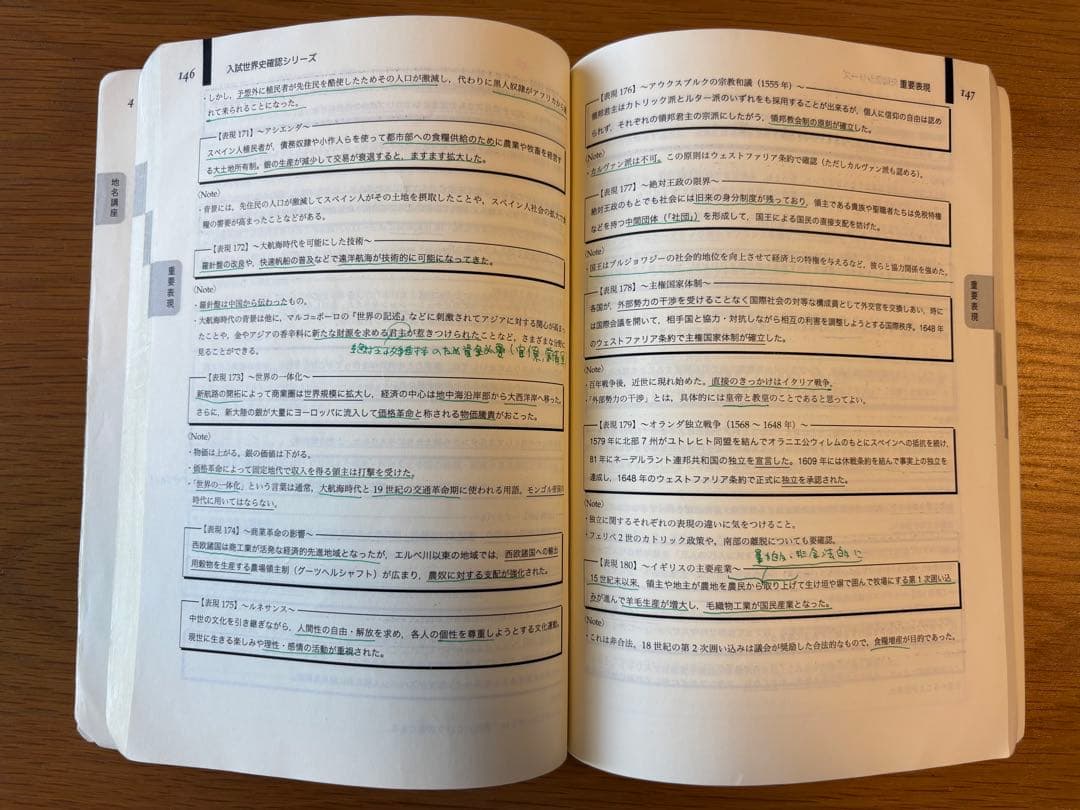 146
入試世界史確認シリーズ
・しかし、予想外に植民者が先住民を酷使したためその人口が激減し、代わりに黒人奴隷がアフリカから
れて来られることになった。
【表現 171】~アシエンダ~
スペイン人植民者が、債務奴隷や小作人らを使って都市部への食糧供給のために農業や牧畜を経営す
る大土地所有制。銀の生産が減少して交易が衰退すると、ますます拡大した。
(Note)
・背景には、先住民の人口が激減してスペイン人がその土地を摂取したことや、スペイン人社会の拡大で食
糧の需要が高まったことなどがある。
【表現 172】~大航海時代を可能にした技術~
羅針盤の改良や、快速帆船の普及などで遠洋航海が技術的に可能になってきた。
(Note)
・羅針盤は中国から伝わったもの。
・大航海時代の背景は他に、マルコ=ポーロの『世界の記述』などに刺激されてアジアに対する関心が高ま
ったことや、金やアジアの香辛料に新たな財源を求める君主が惹きつけられたことなど、さまざまな分野に
見ることができる。
【表現 173】~世界の一体化~
新航路の開拓によって商業圏は世界規模に拡大し、経済の中心は地中海沿岸部から大西洋岸へ移った。
さらに、新大陸の銀が大量にヨーロッパに流入して価格革命と称される物価騰貴がおこった。
(Note)
・物価は上がる。銀の価値は下がる。
・価格革命によって固定地代で収入を得る領主は打撃を受けた。
・「世界の一体化」という言葉は通常、大航海時代と 19 世紀の交通革命期に使われる用語。モンゴル帝国の
時代に用いてはならない。
【表現 174】~商業革命の影響~
西欧諸国は商工業が活発な経済的先進地域となったが、エルベ川以東の地域では、西欧諸国への輸出
用穀物を生産する農場領主制(グーツヘルシャフト)が広まり、農奴に対する支配が強化された。
【表現 175】~ルネサンス~
中世の文化を引き継ぎながら、人間性の自由・解放を求め、各人の個性を尊重しようとする文化運動。
現世に生きる楽しみや理性・感情の活動が重視された。
4
地名講座
重要表現
重要表現
147
【表現 176】~アウクスブルクの宗教和議(1555 年)~
領邦君主はカトリック派とルター派のいずれをも採用することが出来るが、個人に信仰の自由は認め
られず、それぞれの領邦君主の宗派にしたがう、領邦教会制の原則が確立した。
(Note)
・カルヴァン派は不可。この原則はウェストファリア条約で確認(ただしカルヴァン派も認める)。
【表現 177】~絶対王政の限界~
絶対王政のもとでも社会には旧来の身分制度が残っており、領主である貴族や聖職者たちは免税特権
などを持つ中間団体(「社団」)を形成して、国王による国民の直接支配を妨げた。
(Note)
・国王はブルジョワジーの社会的地位を向上させて経済上の特権を与えるなど、彼らと協力関係を強めた。
【表現 178】~主権国家体制~
各国が、外部勢力の干渉を受けることなく国際社会の対等な構成員として外交官を交換しあい、時に
は国際会議を開いて、相手国と協力・対抗しながら相互の利害を調整しようとする国際秩序。1648 年
のウェストファリア条約で主権国家体制が確立した。
(Note)
・百年戦争後、近世に現れ始めた。直接のきっかけはイタリア戦争。
・「外部勢力の干渉」とは、具体的には皇帝と教皇のことであると思ってよい。
【表現 179】~オランダ独立戦争(1568 ~ 1648 年)~
1579 年に北部 7 州がユトレヒト同盟を結んでオラニエ公ウィレムのもとにスペインへの抵抗を続け、
81 年にネーデルラント連邦共和国の独立を宣言した。1609 年には休戦条約を結んで事実上の独立を
達成し、1648 年のウェストファリア条約で正式に独立を承認された。
(Note)
・独立に関するそれぞれの表現の違いに気をつけること。
・フェリペ 2 世のカトリック政策や、南部の離脱についても要確認。
【表現 180】~イギリスの主要産業~
15 世紀末以来、領主や地主が農地を農民から取り上げて生け垣や塀で囲んで牧場にする第 1 次囲い込
みが進んで羊毛生産が増大し、毛織物工業が国民産業となった。
(Note)
・これは非合法、18 世紀の第 2 次囲い込みは議会が奨励した合法的なもので、食糧増産が目的であった。
重要表現